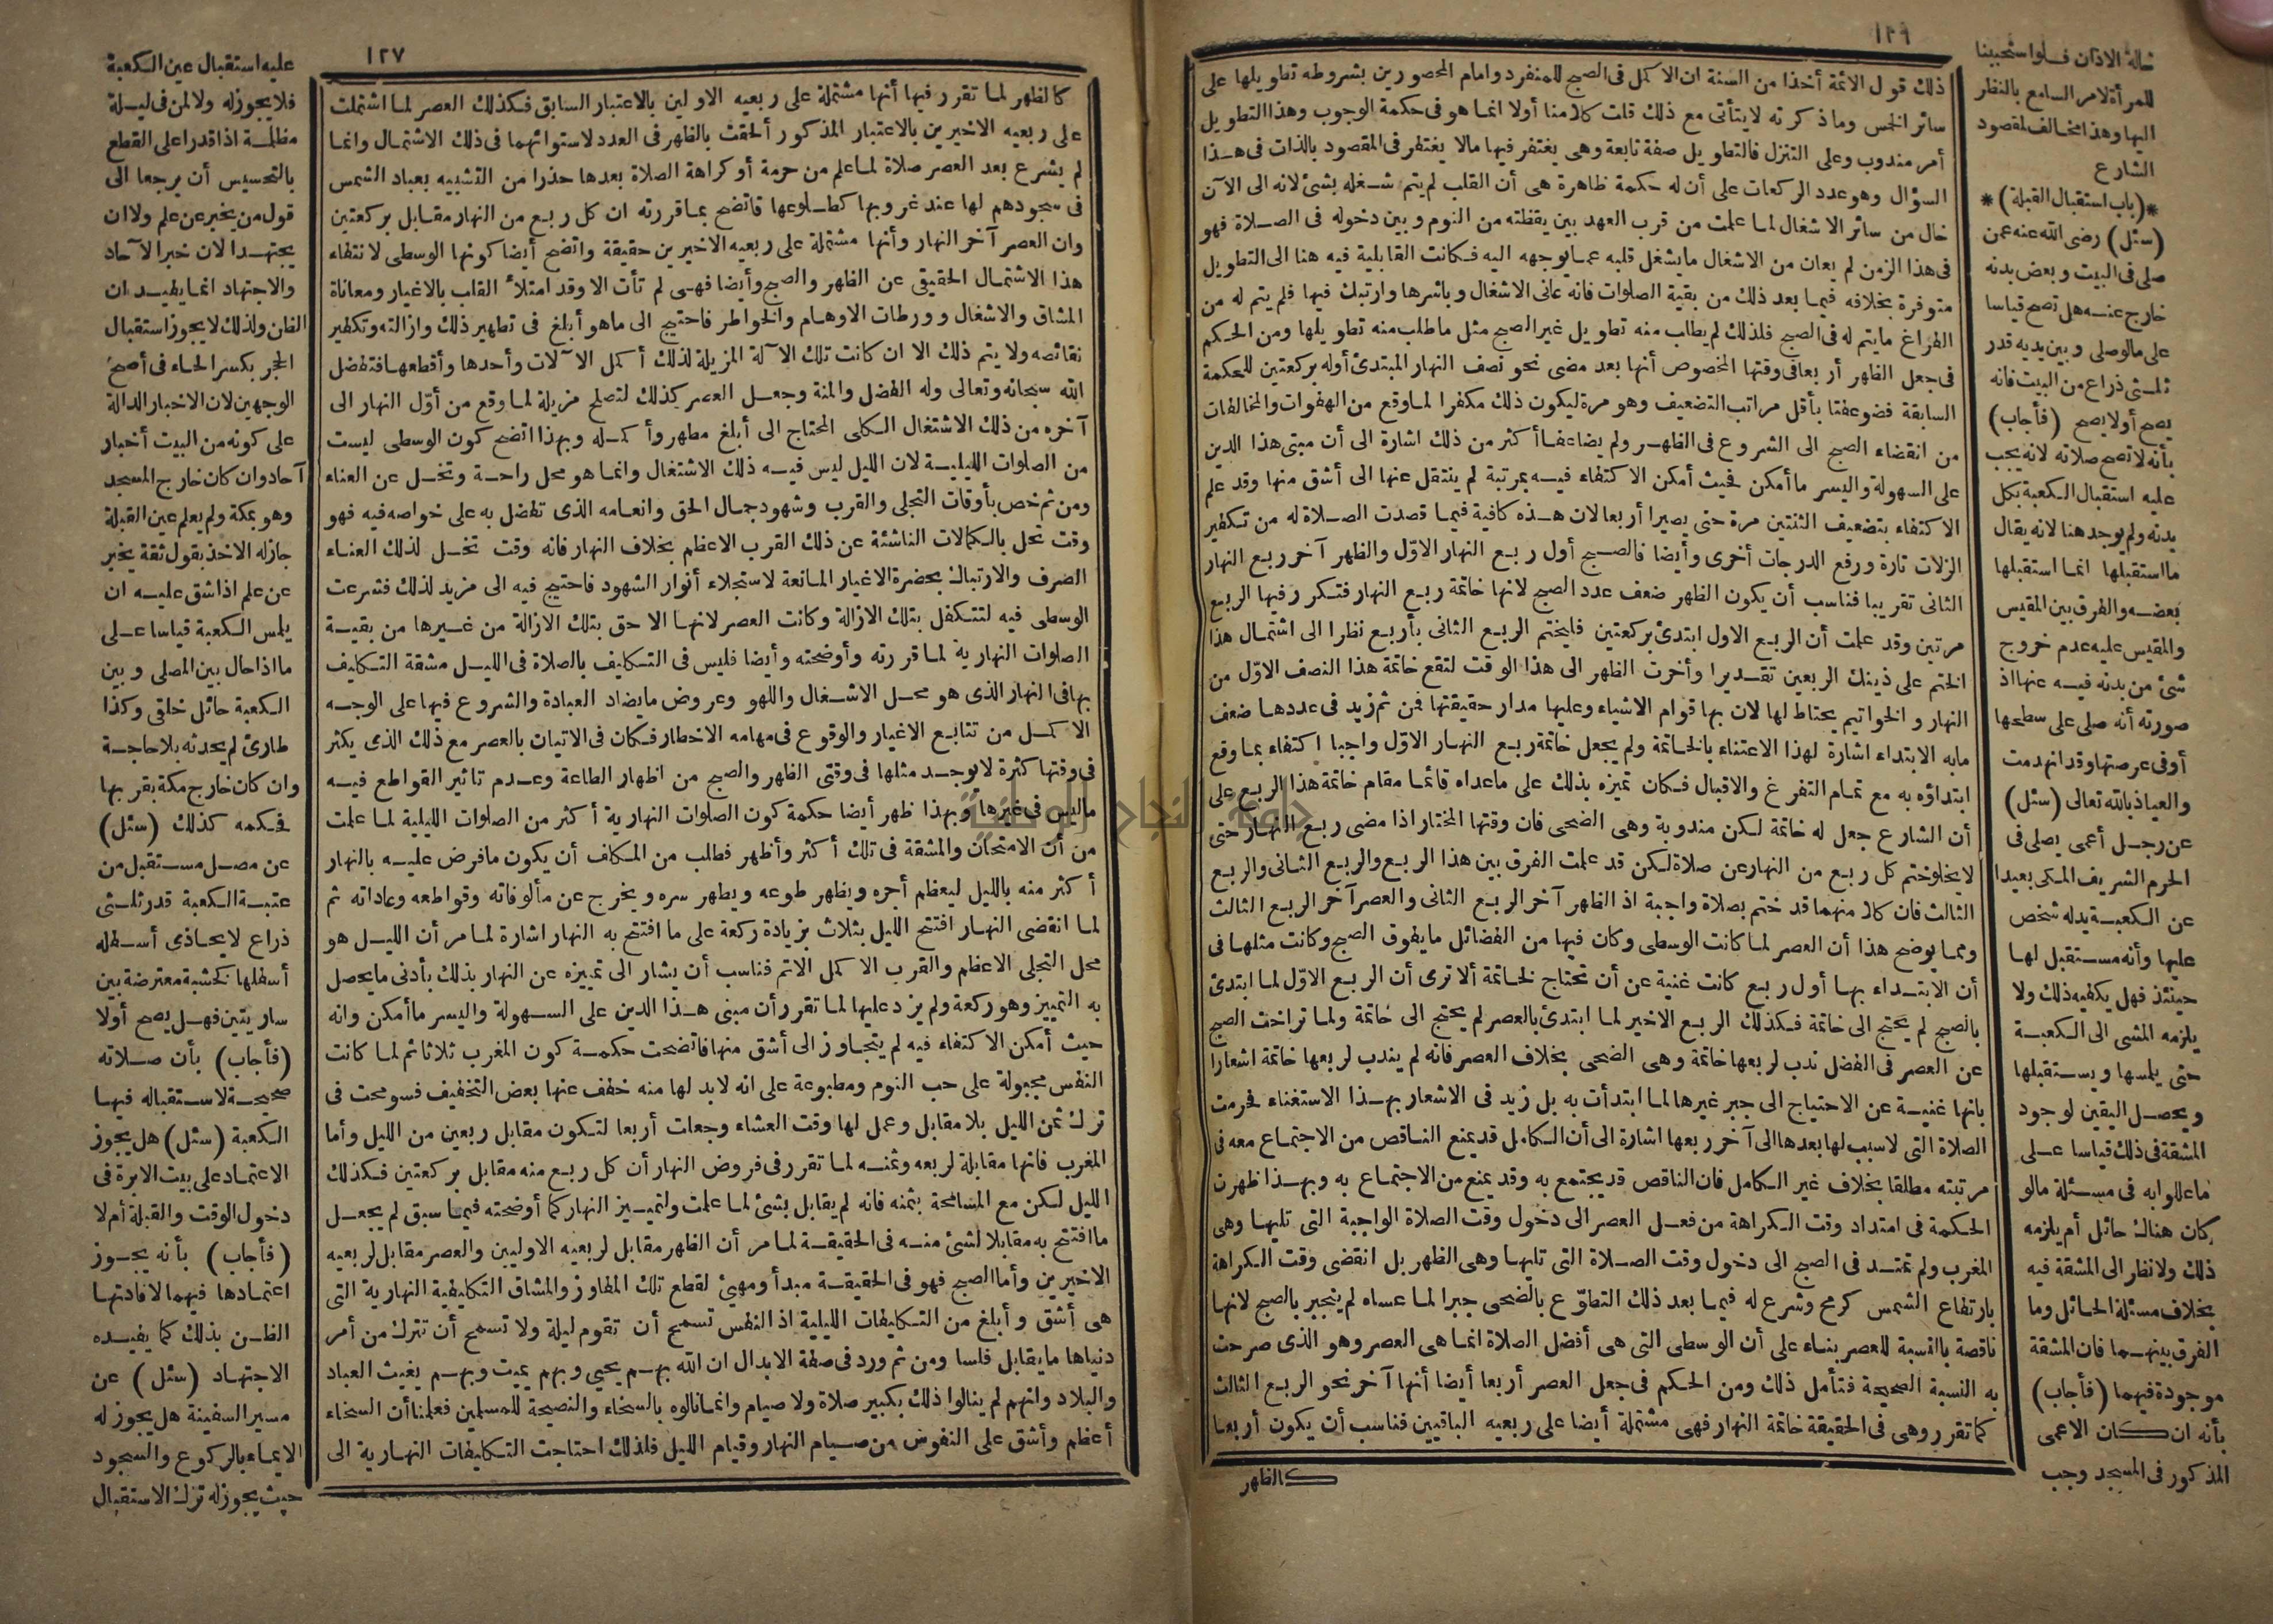 ١٢٦
ذلك قول الائمة أخذا من السنة ان الاكمل فى الصبح للمنفرد وامام المحصورين بشروطه تطويلها على
سائر الخمس وماذكرته لا يتأتى مع ذلك قلت كلامنا أولا انما هو فى حكمة الوجوب وهذا التطويل
أمر مندوب وعلى التنزل فالتطويل صفة تابعة وهى يغتفر فيها مالا يغتفر فى المقصود بالذات فى هذا
السؤال وهو عدد الركعات على أن له حكمة ظاهرة هى أن القلب لم يتم شغله بشئ لانه الى الآن
خال من سائر الاشغال لما علمت من قرب العهد بين يقظته من النوم وبين دخوله فى الصلاة فهو
فى هذا الزمن لم يعان من الاشغال مايشغل قلبه عما يوجهه اليه فكانت القابلية فيه هنا الى التطويل
متوفرة بخلافه فيما بعد ذلك من بقية الصلوات فانه عانى الاشغال وباشرها وارتبك فيها فلم يتم له من
الفراغ مايتم له فى الصبح فلذلك لم يطلب منه تطويل غير الصبح مثل ماطلب منه تطويلها ومن الحكم
فى جعل الظهر أربعا فى وقتها المخصوص أنها بعد مضى نحو نصف النهار المبتدئ أوله بركعتين للحكمة
السابقة فضوعفتا بأقل مراتب التضعيف وهو مرة ليكون ذلك مكفرا لما وقع من الهفوات والمخالفات
من انقضاء الصبح الى الشروع فى الظهر ولم يضاعفا أكثر من ذلك اشارة الى أن مبنى هذا الدين
على السهولة واليسر ما أمكن فحيث أمكن الاكتفاء فيه بمرتبة لم ينتقل عنها الى أشق منها وقد علم
الاكتفاء بتضعيف الثنتين مرة حتى يصيرا أربعا لان هذه كافية فيما قصدت الصلاة له من تكفير
الزلات تارة ورفع الدرجات أخرى وأيضا فالصبح أول ربع النهار الاوّل والظهر آخر ربع النهار
الثانى تقريبا فناسب أن يكون الظهر ضعف عدد الصبح لانها خاتمة ربع النهار فتكرر فيها الربع
مرتين وقد علمت أن الربع الاول ابتدئ بركعتين فليختم الربع الثانى بأربع نظرا الى اشتمال هذا
الختم على ذينك الربعين تقديرا وأخرت الظهر الى هذا الوقت لتقع خاتمة هذا النصف الاوّل من
النهار والخواتيم يحتاط لها لان بها قوام الاشياء وعليها مدار حقيقتها فمن ثم زيد فى عددها ضعف
مابه الابتداء اشارة لهذا الاعتناء بالخاتمة ولم يجعل خاتمة ربع النهار الاوّل واجبا اكتفاء بما وقع
ابتداؤه به مع تمام التفرغ والاقبال فكان تميزه بذلك على ماعداه قائما مقام خاتمة هذا الربع على
أن الشارع جعل له خاتمة لكن مندوبة وهى الضحى فان وقتها المختار اذا مضى ربع النهار حتى
لايخلو ختم كل ربع من النهار عن صلاة لكن قد علمت الفرق بين هذا الربع والربع الثانى والربع
الثالث فان كلا منهما قد ختم بصلاة واجبة اذ الظهر آخر الربع الثانى والعصر آخر الربع الثالث
ومما يوضح هذا أن العصر لما كانت الوسطى وكان فيها من الفضائل مايفوق الصبح وكانت مثلها فى
أن الابتداء بها أول ربع كانت غنية عن أن تحتاج لخاتمة ألا ترى أن الربع الاوّل لما ابتدئ
بالصبح لم يحتج الى خاتمة فكذلك الربع الاخير لما ابتدئ بالعصر لم يحتج الى خاتمة ولما تراخت الصبح
عن العصر فى الفضل ندب لربعها خاتمة وهى الضحى بخلاف العصر فانه لم يندب لربعها خاتمة اشعارا
بانها غنية عن الاحتياج الى جبر غيرها لما ابتدأت به بل زيد فى الاشعار بهذا الاستغناء فحرمت
الصلاة التى لاسبب لها بعدها الى آخر ربعها اشارة الى أن الكامل قد يمنع الناقص من الاجتماع معه فى
مرتبته مطلقا بخلاف غير الكامل فان الناقص قد يجتمع به وقد يمنع من الاجتماع به وبهذا ظهرت
الحكمة فى امتداد وقت الكراهة من فعل العصر الى دخول وقت الصلاة الواجبة التى تليها وهى
المغرب ولم تمتد فى الصبح الى دخول وقت الصلاة التى تليها وهى الظهر بل انقضى وقت الكراهة
بارتفاع الشمس كرمح وشرع له فيما بعد ذلك التطوّع بالضحى جبرا لما عساه لم ينجبر بالصبح لانها
ناقصة بالنسبة للعصر بناء على أن الوسطى التى هى أفضل الصلاة انما هى العصر وهو الذى صرحت
به السنة الصحيحة فتأمل ذلك ومن الحكم فى جعل العصر أربعا أيضا أنها آخر نحو الربع الثالث
كما تقرر وهى فى الحقيقة خاتمة النهار فهى مشتملة أيضا على ربعيه الباقيين فناسب أن يكون أربعا
كالظهر
ثالة الاذان فلو استحبينا
للمرأة لامر السامع بالنظر
اليها وهذا مخالف لمقصود
الشارع
*(باب استقبال القبلة)*
(سئل) رضى الله عنه عمن
صلى فى البيت وبعض بدنه
خارج عنه هل تصح قياسا
على مالو صلى وبين يديه قدر
ثلثى ذراع من البيت فانه
يصح أولا يصح (فأجاب)
بأنه لا تصح صلاته لانه يجب
عليه استقبال الكعبة بكل
بدنه ولم يوجد هنا لانه يقال
ما استقبلها انما استقبلها
بعضه والفرق بين المقيس
والمقيس عليه عدم خروج
شئ من بدنه فيه عنها اذ
صورته أنه صلى على سطحها
أوفى عرصتها وقد انهدمت
والعياذ بالله تعالى (سئل)
عن رجل أعمى يصلى فى
الحرم الشريف المكى بعيدا
عن الكعبة يدله شخص
عليها وأنه مستقبل لها
حينئذ فهل يكفيه ذلك ولا
يلزمه المشى الى الكعبة
حتى يلمسها ويستقبلها
ويحصل اليقين لوجود
المشقة فى ذلك قياسا على
ماعللوا به فى مسئلة مالو
كان هناك حائل أم يلزمه
ذلك ولا نظر الى المشقة فيه
بخلاف مسئلة الحائل وما
الفرق بينهما فان المشقة
موجودة فيهما (فأجاب)
بأنه ان كان الاعمى
المذكور فى المسجد وجب
١٢٧
كالظهر لما تقرر فيها أنها مشتملة على ربعيه الاولين بالاعتبار السابق فكذلك العصر لما اشتملت
على ربعيه الاخيرين بالاعتبار المذكور ألحقت بالظهر فى العدد لاستوائهما فى ذلك الاشتمال وانما
لم يشرع بعد العصر صلاة لما علم من حرمة أو كراهة الصلاة بعدها حذرا من التشبيه بعباد الشمس
فى سجودهم لها عند غروبها كطلوعها فاتضح بما قررته ان كل ربع من النهار مقابل بركعتين
وان العصر آخر النهار وأنها مشتملة على ربعيه الاخيرين حقيقة واتضح أيضا كونها الوسطى لانتفاء
هذا الاشتمال الحقيقى عن الظهر والصبح وأيضا فهى لم تأت الا وقد امتلأ القلب بالاغيار ومعاناة
المشاق والاشغال وورطات الاوهام والخواطر فاحتيج الى ماهو أبلغ فى تطهير ذلك وازالته وتكفير
نقائصه ولا يتم ذلك الا ان كانت تلك الآلة المزيلة لذلك أكمل الآلات وأحدها وأقطعها فتفضل
الله سبحانه وتعالى وله الفضل والمنة وجعل العصر كذلك لتصلح مزيلة لما وقع من أوّل النهار الى
آخره من ذلك الاشتغال الكلى المحتاج الى أبلغ مطهر وأكمله وبهذا اتضح كون الوسطى ليست
من الصلوات الليلية لان الليل ليس فيه ذلك الاشتغال وانما هو محل راحة وتخل عن العناء
ومن ثم خص بأوقات التجلى والقرب وشهود جمال الحق وانعامه الذى تفضل به على خواصه فيه فهو
وقت تحل بالكمالات الناشئة عن ذلك القرب الاعظم بخلاف النهار فانه وقت تخل لذلك العناء
الصرف والارتباك بحضرة الاغيار المانعة لاستجلاء أنوار الشهود فاحتيج فيه الى مزيد لذلك فشرعت
الوسطى فيه لتتكفل بتلك الازالة وكانت العصر لانها الاحق بتلك الازالة من غيرها من بقية
الصلوات النهارية لما قررته وأوضحته وأيضا فليس فى التكليف بالصلاة فى الليل مشقة التكليف
بها فى النهار الذى هو محل الاشغال واللهو وعروض مايضاد العبادة والشروع فيها على الوجه
الاكمل من تتابع الاغيار والوقوع فى مهامه الاخطار فكان فى الاتيان بالعصر مع ذلك الذى يكثر
فى وقتها كثرة لايوجد مثلها فى وقتى الظهر والصبح من اظهار الطاعة وعدم تاثير القواطع فيه
ماليس فى غيرها وبهذا ظهر أيضا حكمة كون الصلوات النهارية أكثر من الصلوات الليلية لما علمت
من أن الامتحان والمشقة فى تلك أكثر وأظهر فطلب من المكلف أن يكون مافرض عليه بالنهار
أكثر منه بالليل ليعظم أجره ويظهر طوعه ويطهر سره ويخرج عن مألوفاته وقواطعه وعاداته ثم
لما انقضى النهار افتتح الليل بثلاث بزيادة ركعة على ما افتتح به النهار اشارة لما مر أن الليل هو
محل التجلى الاعظم والقرب الاكمل الاتم فناسب أن يشار الى تمييزه عن النهار بذلك بأدنى مايحصل
به التمييز وهو ركعة ولم يزد عليها لما تقرر أن مبنى هذا الدين على السهولة واليسر ما أمكن وانه
حيث أمكن الاكتفاء فيه لم يتجاوز الى أشق منها فاتضحت حكمة كون المغرب ثلاثا ثم لما كانت
النفس مجبولة على حب النوم ومطبوعة على انه لابد لها منه خفف عنها بعض التخفيف فسومحت فى
ترك ثمن الليل بلا مقابل وعمل لها وقت العشاء وجعلت أربعا لتكون مقابل ربعين من الليل وأما
المغرب فانها مقابلة لربعه وثمنه لما تقرر فى فروض النهار أن كل ربع منه مقابل بركعتين فكذلك
الليل لكن مع المسامحة بثمنه فانه لم يقابل بشئ لما علمت ولتمييز النهار كما أوضحته فيما سبق لم يجعل
ما افتتح به مقابلا لشئ منه فى الحقيقة لما مر أن الظهر مقابل لربعيه الاوليين والعصر مقابل لربعيه
الاخيرين وأما الصبح فهو فى الحقيقة مبدأ ومهيئ لقطع تلك المفاوز والمشاق التكليفية النهارية التى
هى أشق وأبلغ من التكليفات الليلية اذ النفس تسمح أن تقوم ليلة ولا تسمح أن تترك من أمر
دنياها مايقابل فلسا ومن ثم ورد فى صفة الابدال ان الله بهم يحيى وبهم يميت وبهم يغيث العباد
والبلاد وانهم لم ينالوا ذلك بكبير صلاة ولا صيام وانما نالوه بالسخاء والنصيحة للمسلمين فعلمنا أن السخاء
أعظم وأشق على النفوس من صيام النهار وقيام الليل فلذلك احتاجت التكليفات النهارية الى
عليه استقبال عين الكعبة
فلا يجوز له ولا لمن فى ليلة
مظلمة اذا قدرا على القطع
بالتحسيس أن يرجعا الى
قول من يخبر عن علم ولا ان
يجتهدا لان خبر الآحاد
والاجتهاد انما يفيدان
الظن ولذلك لا يجوز استقبال
الحجر بكسر الحاء فى أصح
الوجهين لان الاخبار الدالة
على كونه من البيت أخبار
آحاد وان كان خارج المسجد
وهو بمكة ولم يعلم عين القبلة
جاز له الاخذ بقول ثقة يخبر
عن علم اذا شق عليه ان
يلمس الكعبة قياسا على
ما اذا حال بين المصلى وبين
الكعبة حائل خلقى وكذا
طارئ لم يحدثه بلا حاجة
وان كان خارج مكة بقربها
فحكمه كذلك (سئل)
عن مصل مستقبل من
عتبة الكعبة قدر ثلثى
ذراع لا يحاذى أسفله
أسفلها كخشبة معترضة بين
ساريتين فهل يصح أولا
(فأجاب) بأن صلاته
صحيحة لاستقباله فيها
الكعبة (سئل) هل يجوز
الاعتماد على بيت الابرة فى
دخول الوقت والقبلة أم لا
(فأجاب) بأنه يجوز
اعتمادها فيهما لافادتها
الظن بذلك كما يفيده
الاجتهاد (سئل) عن
مسير السفينة هل يجوز له
الايماء بالركوع والسجود
حيث يجوز له ترك الاستقبال
جامعة النجاح الوطنية